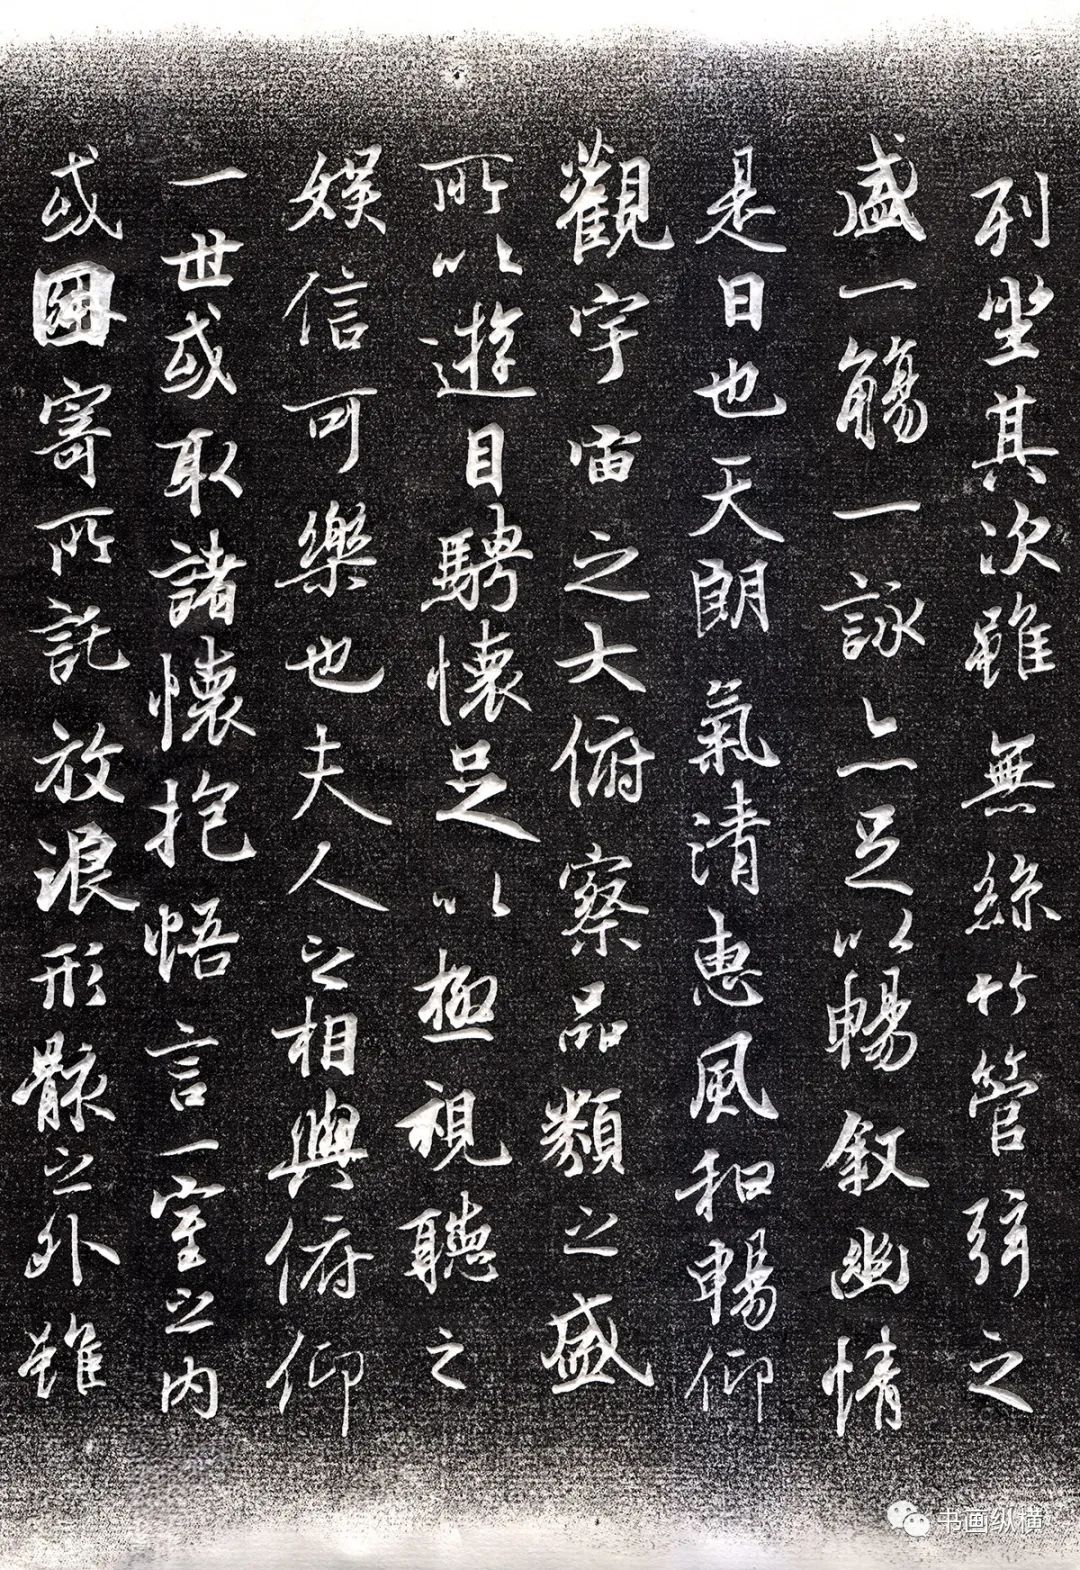 列坐其次雖無絲竹管弦之
盛一觴一詠亦足以暢叙幽情
是日也天朗氣清惠風和暢仰
觀宇宙之大俯察品類之盛
所以遊目騁懷足以極視聽之
娛信可樂也夫人之相與俯仰
一世或取諸懷抱悟言一室之内
或因寄所託放浪形骸之外雖
书画纵横